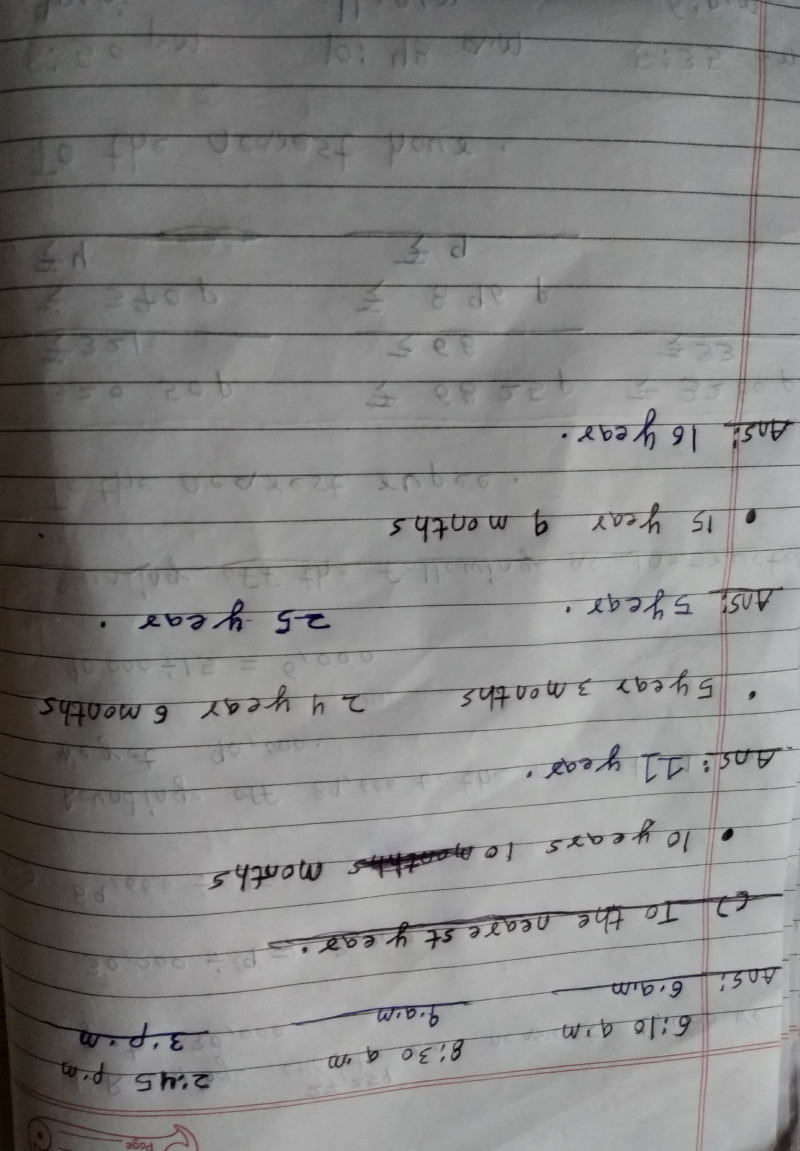 Page
6:10 a.m 8:30 a.m 2:45 p.m
Ans: 6.a.m 9.a.m 3.p.m
c) To the nearest year.
• 10 years 10 months
Ans: 11 year.
• 5 year 3 months 24 year 6 months
Ans: 5 year. 25 year.
• 15 year 9 months
Ans: 16 year.